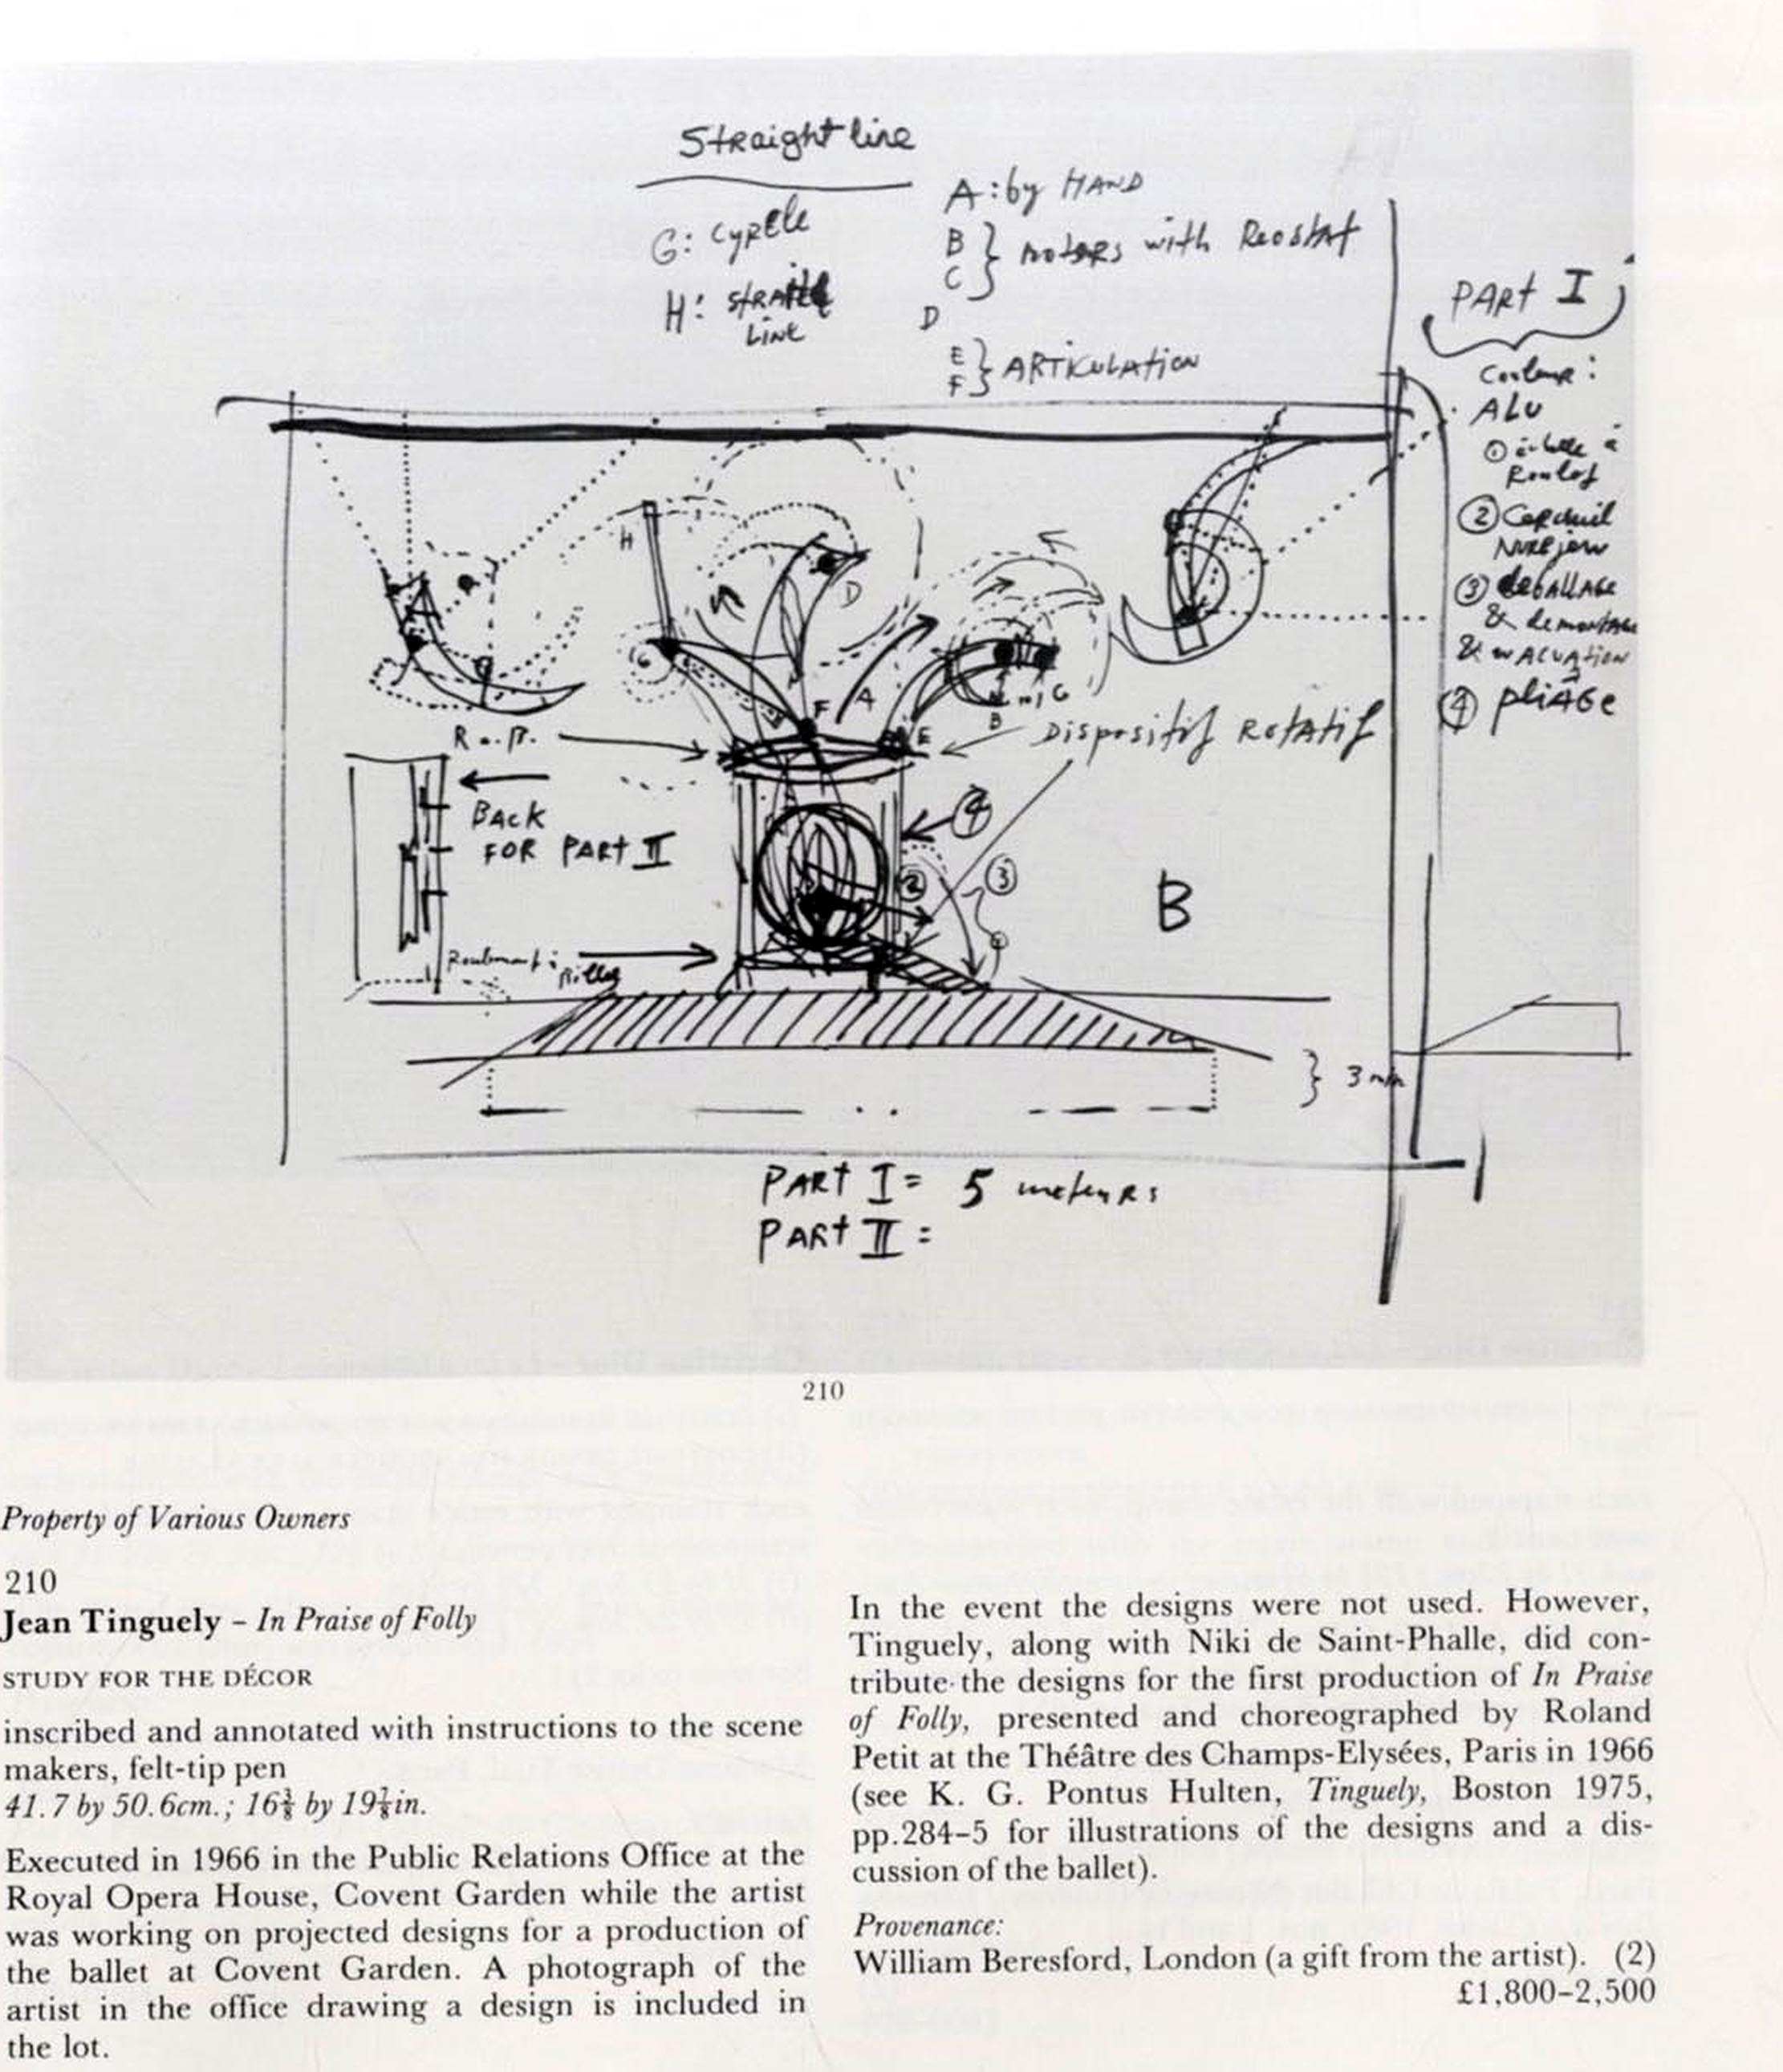 Straight line
G: cyrcle
H: 
LINE
A: by HAND
B
C } motors with Reostat
D
E
F } ARTIKULATION
PART I
Couleur:
ALU
①
②
Nurejew
③ deballage
& demontage
&
④ pliAGe
H
D
G
F
A
E
B
G
R.
Dispositif Rotatif
BACK
FOR PART II
④
②
③
B
} 3 min
PART I = 5 meters
PART II =
210
Property of Various Owners
210
Jean Tinguely – In Praise of Folly
STUDY FOR THE DÉCOR
inscribed and annotated with instructions to the scene
makers, felt-tip pen
41.7 by 50.6cm.; 16⅜ by 19⅞in.
Executed in 1966 in the Public Relations Office at the
Royal Opera House, Covent Garden while the artist
was working on projected designs for a production of
the ballet at Covent Garden. A photograph of the
artist in the office drawing a design is included in
the lot.
In the event the designs were not used. However,
Tinguely, along with Niki de Saint-Phalle, did con-
tribute the designs for the first production of In Praise
of Folly, presented and choreographed by Roland
Petit at the Théâtre des Champs-Elysées, Paris in 1966
(see K. G. Pontus Hulten, Tinguely, Boston 1975,
pp.284–5 for illustrations of the designs and a dis-
cussion of the ballet).
Provenance:
William Beresford, London (a gift from the artist). (2)
£1,800–2,500